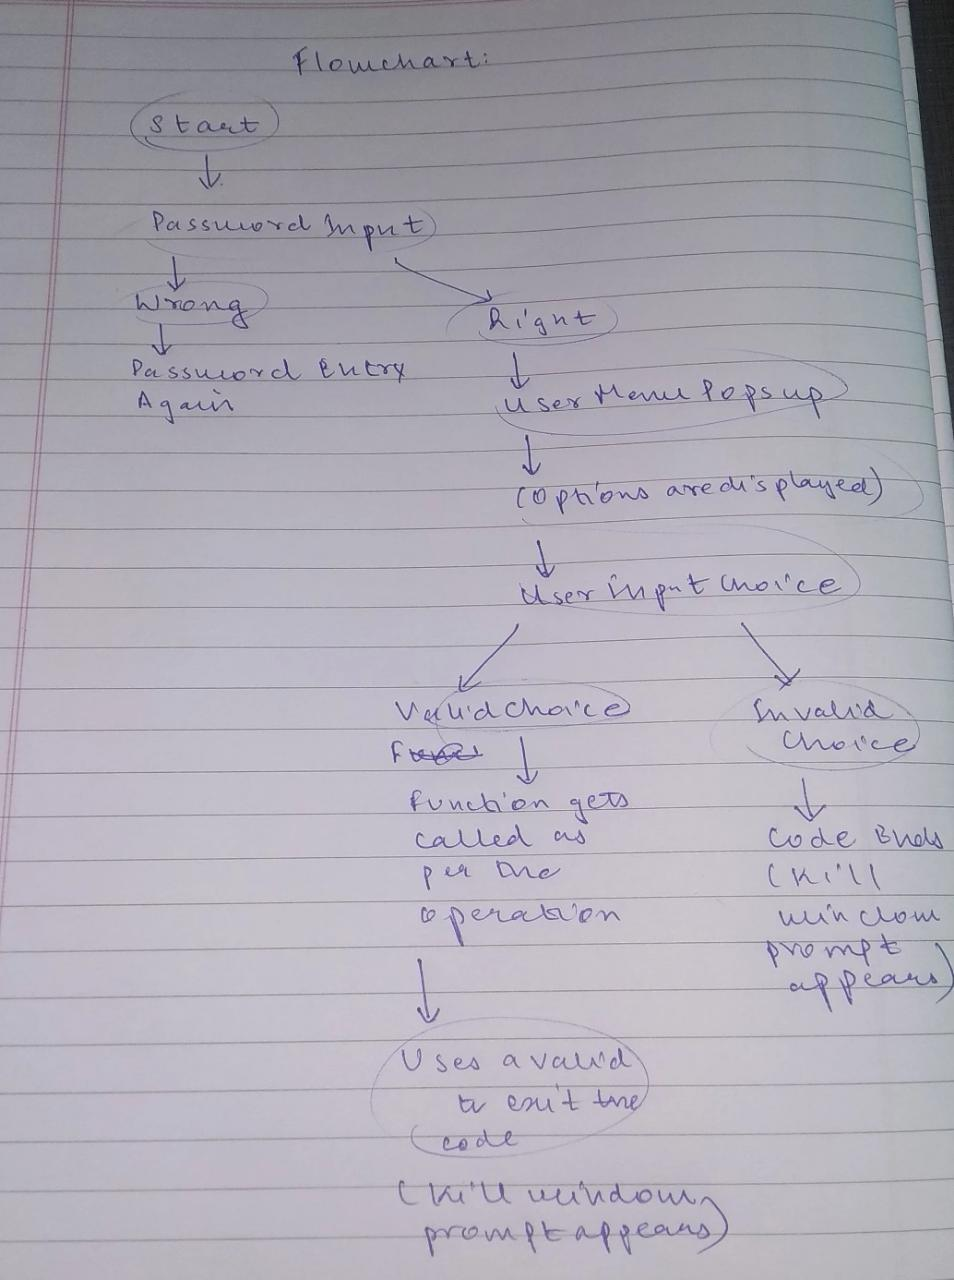 Flowchart:
Start
Password Input
Wrong
Right
Password Entry
Again
User Menu Pops up
(Options are displayed)
User input choice
Valid choice
Invalid
Choice
Function gets
called as
per the
operation
Code Ends
(Kill
window
prompt
appears)
Uses a valid
to exit the
code
(Kill window
prompt appears)